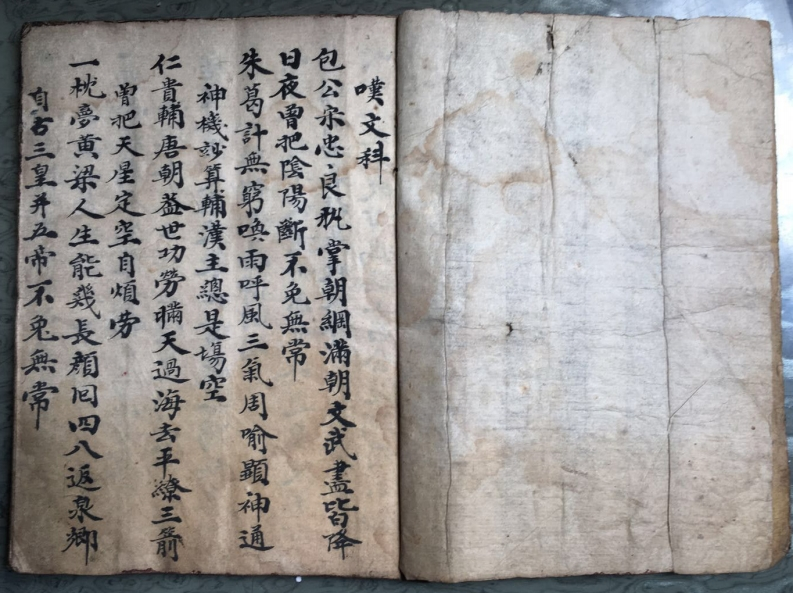 嘆文科
包公宋忠良執掌朝綱滿朝文武盡皆降
日夜曾把陰陽斷不免無常
朱葛計無窮喚雨呼風三氣周喻顯神通
神機妙算輔漢主總是塲空
仁貴輔唐朝蓋世功勞瞞天過海去平繚三箭
曾把天星定空自煩劳
一枕夢黄梁人生能幾長顏回四八返泉鄉
自古三皇并五帝不免無常